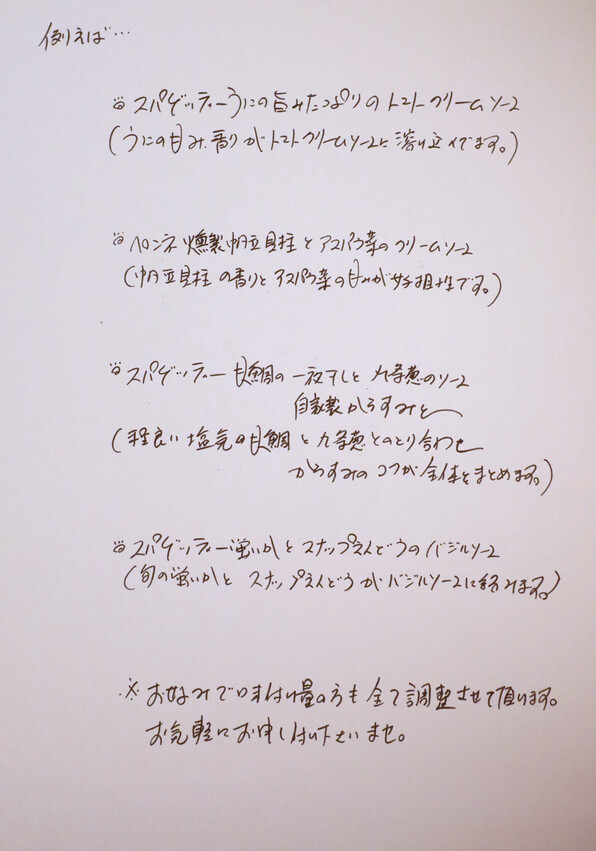 例えば…
スパゲッティーうにの旨みたっぷりのトマトクリームソース
(うにの甘み、香りがトマトクリームソースに溶け立んでます。)
ペンネ燻製帆立貝柱とアスパラ菜のクリームソース
(帆立貝柱の香りとアスパラ菜の甘みが好相性です。)
スパゲッティー甘鯛の一夜干しと九条葱のソース
自家製からすみと
(程良い塩気の甘鯛と九条葱とのとり合わせ
からすみのコクが全体をまとめます。)
スパゲッティー蛍いかとスナップえんどうのバジルソース
(旬の蛍いかとスナップえんどうがバジルソースに絡みます。)
※お好みで味付け量の方も全て調整させて頂います。
お気軽にお申し付け下さいませ。